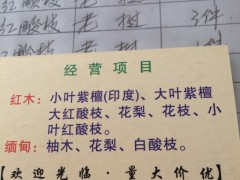 红酸枝 老挝 3件
红酸枝 老挝
经营项目
红木：小叶紫檀(印度)、大叶紫檀
大红酸枝、花梨、花枝、小
叶红酸枝。
缅甸：柚木、花梨、白酸枝。
【欢迎光临·量大价优